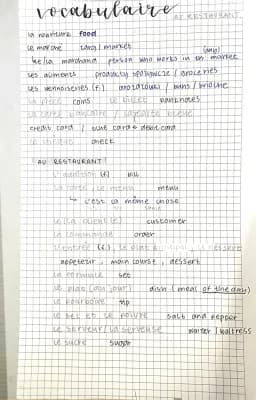 vocabulaire
AU RESTAURANT
la nourriture food
le marché targ / market
le/la marchand person who works in the market
les aliments produkty spożywcze / groceries
les viennoiseries (f.) / buns / brioche
la pièce coins le billet banknotes
la carte bancaire / la carte bleue
credit card / debit card
check
AU RESTAURANT:
l'addition (f.) bill
la carte, le menu menu
↳ c'est la même chose
same
le/la client(e) customer
la commande order
l'entrée (f.), le plat principal, le dessert
appetizer, main course, dessert
la formule set
le plat (du jour) dish (meal of the day)
le pourboire tip
le sel et le poivre salt and pepper
le serveur / la serveuse waiter / waitress
le sucre sugar